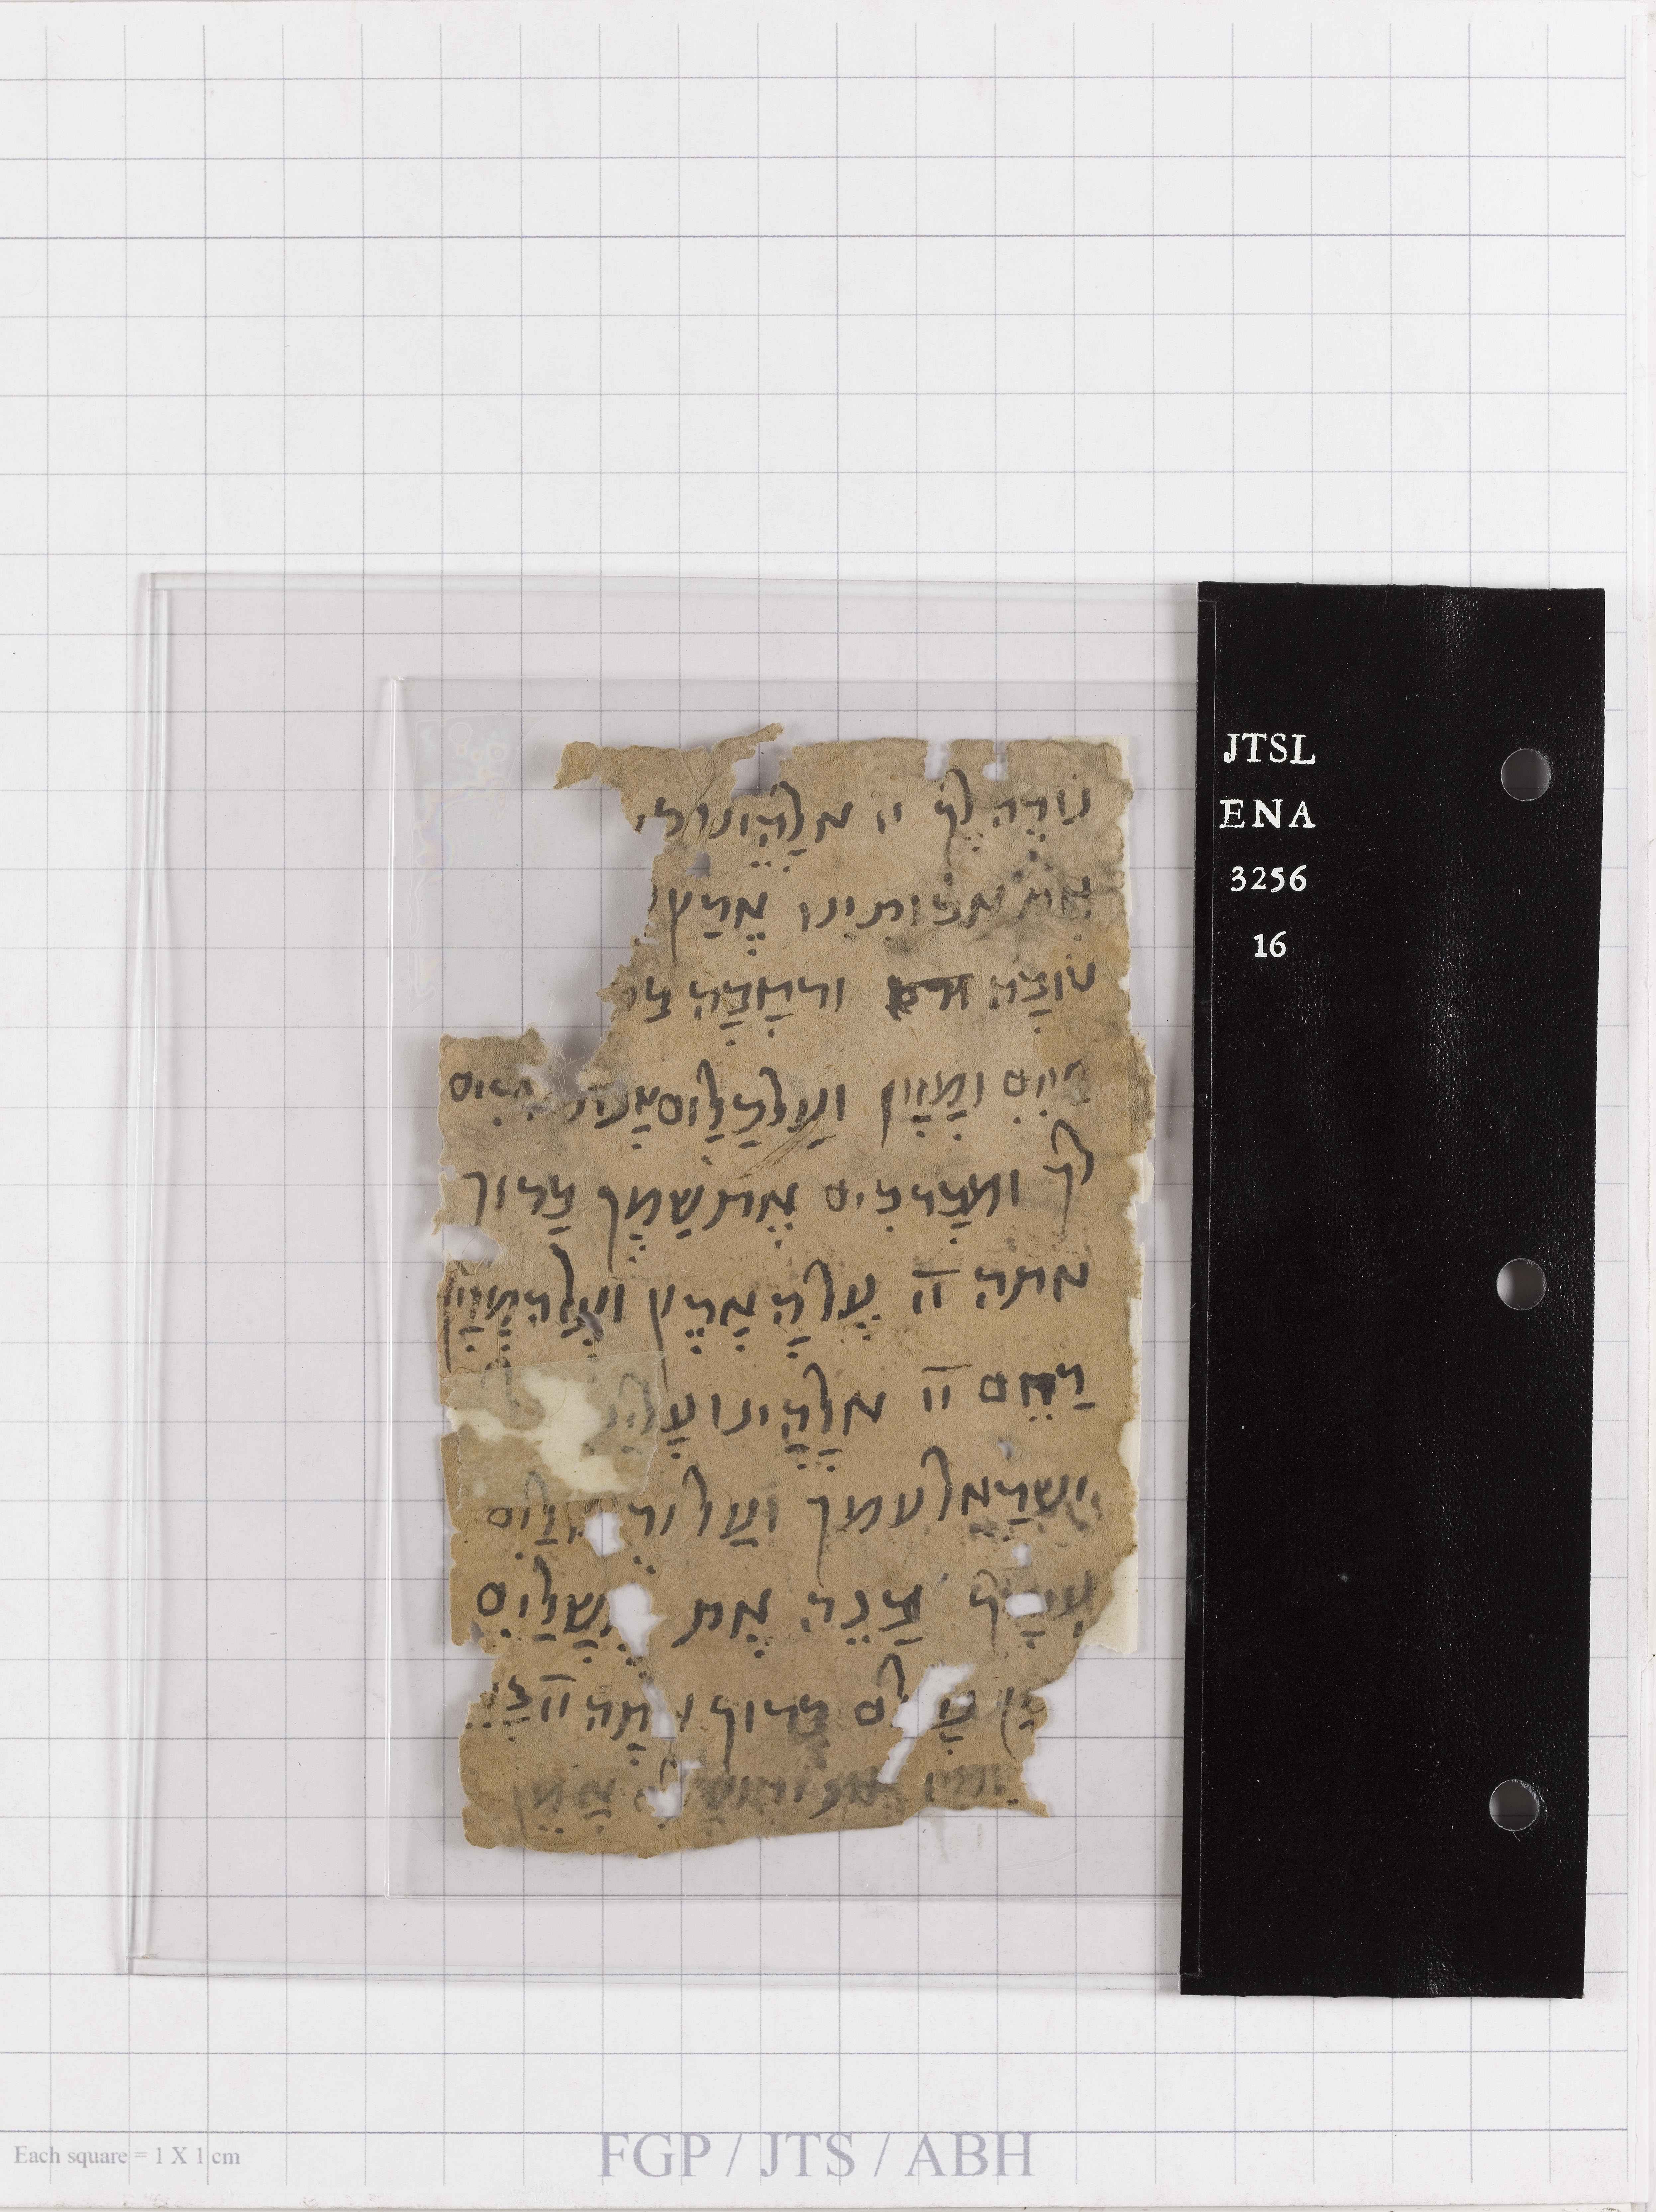 נוֹדֶה לְךָ יי אלהינו כי
את אבותינו ארץ
טובה ורחבה ברי
חיים ומזון ועל הכלום אנו מודים
לך ומברכים את שמך ברוך
אתה יי על הארץ ועל המזון
רחם יי אלהינו עלינו
ישראל עמך ועל ירושלים
עירך בנה את ירושלים
ברוך אתה יי
אמן
JTSL
ENA
3256
16
Each square = 1 X 1 cm
FGP / JTS / ABH